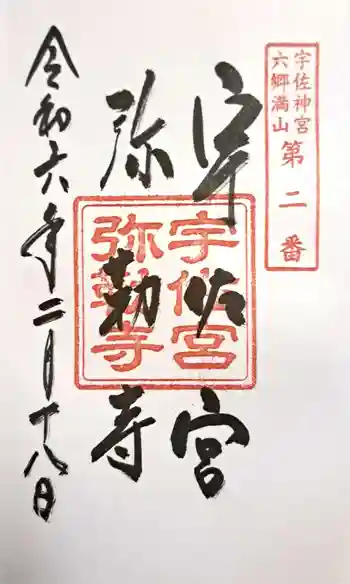 宇佐神宮
六郷満山
第二番
宇佐宮
弥勒寺
宇佐宮
弥勒寺
令和六年二月十八日